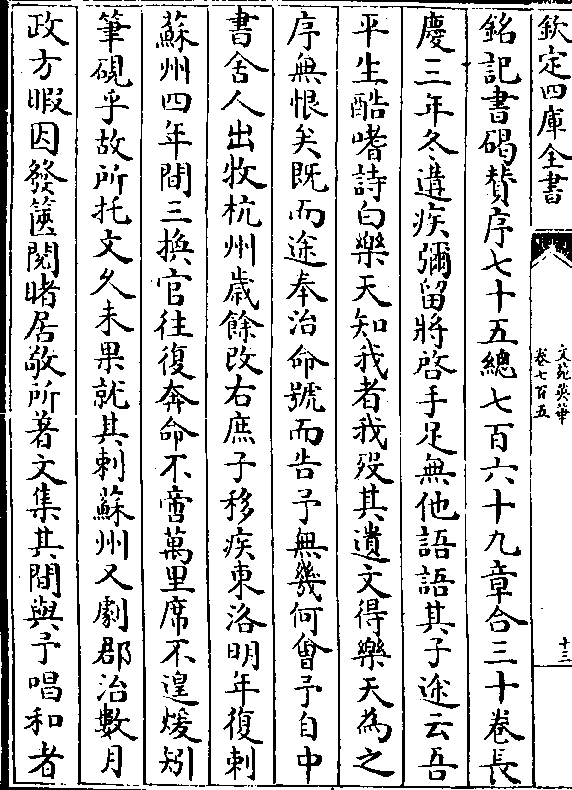 欽定四庫全書
文苑英華
卷七百五
十三
銘記書碣贊序七十五總七百六十九章合三十卷長
慶三年冬遘疾彌留將啓手足無他語語其子途云吾
平生酷嗜詩白樂天知我者我歿其遺文得樂天為之
序無恨矣既而途奉治命號而告予無幾何㑹予自中
書舍人出牧杭州歲餘改右庶子移疾東洛明年復刺
蘇州四年間三換官往復奔命不啻萬里席不遑煖矧
筆硯乎故所托文久未果就其刺蘇州又劇郡治數月
政方暇因發篋閱睹居敬所著文集其間與予唱和者